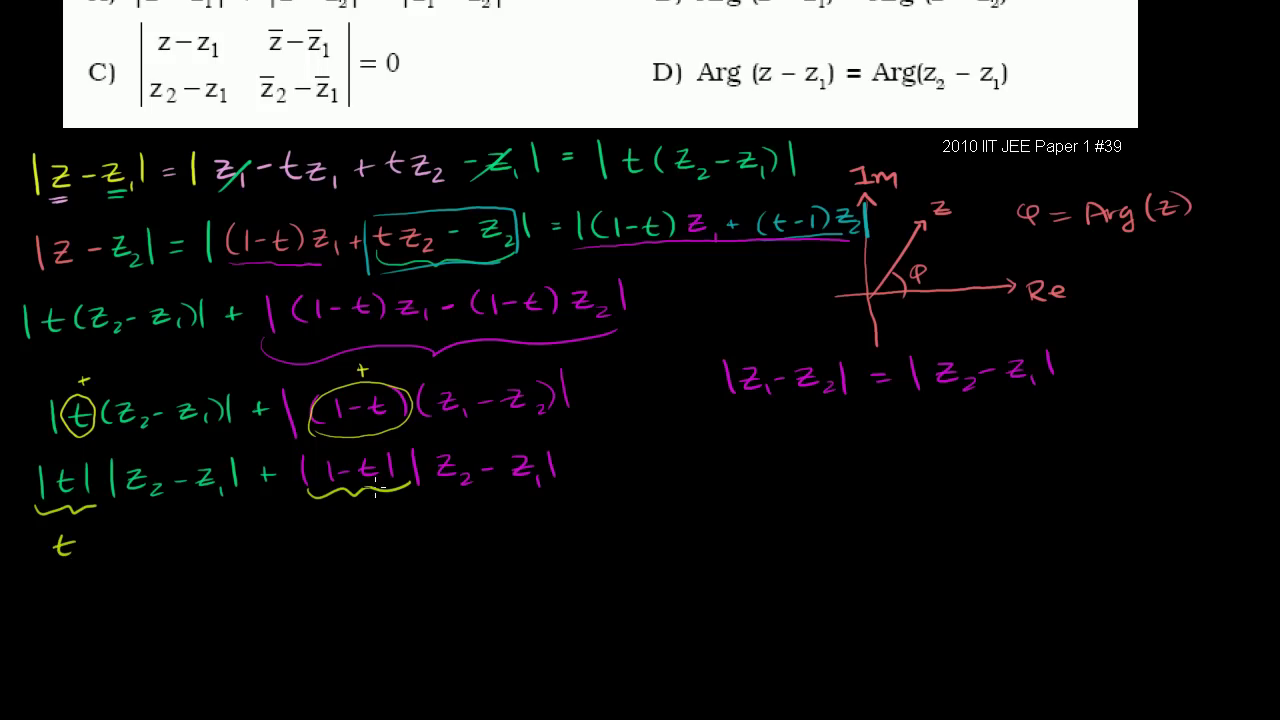 C) | z − z₁ z̄ − z̄₁ |
| z₂ − z₁ z̄₂ − z̄₁ | = 0
D) Arg (z − z₁) = Arg(z₂ − z₁)
2010 IIT JEE Paper 1 #39
|z − z₁| = |z₁ − tz₁ + tz₂ − z₁| = |t(z₂ − z₁)|
|z − z₂| = |(1−t)z₁ + tz₂ − z₂| = |(1−t)z₁ + (t−1)z₂|
|t(z₂ − z₁)| + |(1−t)z₁ − (1−t)z₂|
+ +
|t(z₂ − z₁)| + |(1−t)(z₁ − z₂)|
|t||z₂ − z₁| + |1−t||z₂ − z₁|
t
Im
z
φ
Re
φ = Arg(z)
|z₁ − z₂| = |z₂ − z₁|